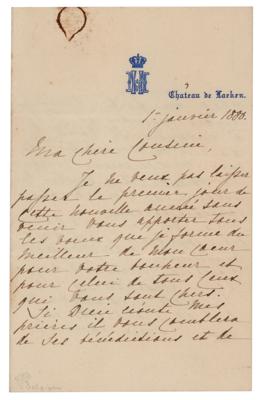 Château de Laeken.
1er janvier 1880.
Ma chère Cousine,
Je ne veux pas laisser
passer le premier jour de
cette nouvelle année sans
venir vous apporter tous
les vœux que je forme du
meilleur de mon cœur
pour votre bonheur et
pour celui de tous ceux
qui vous sont chers.
Si Dieu écoute mes
prières il vous comblera
de Ses bénédictions et de
Belgium